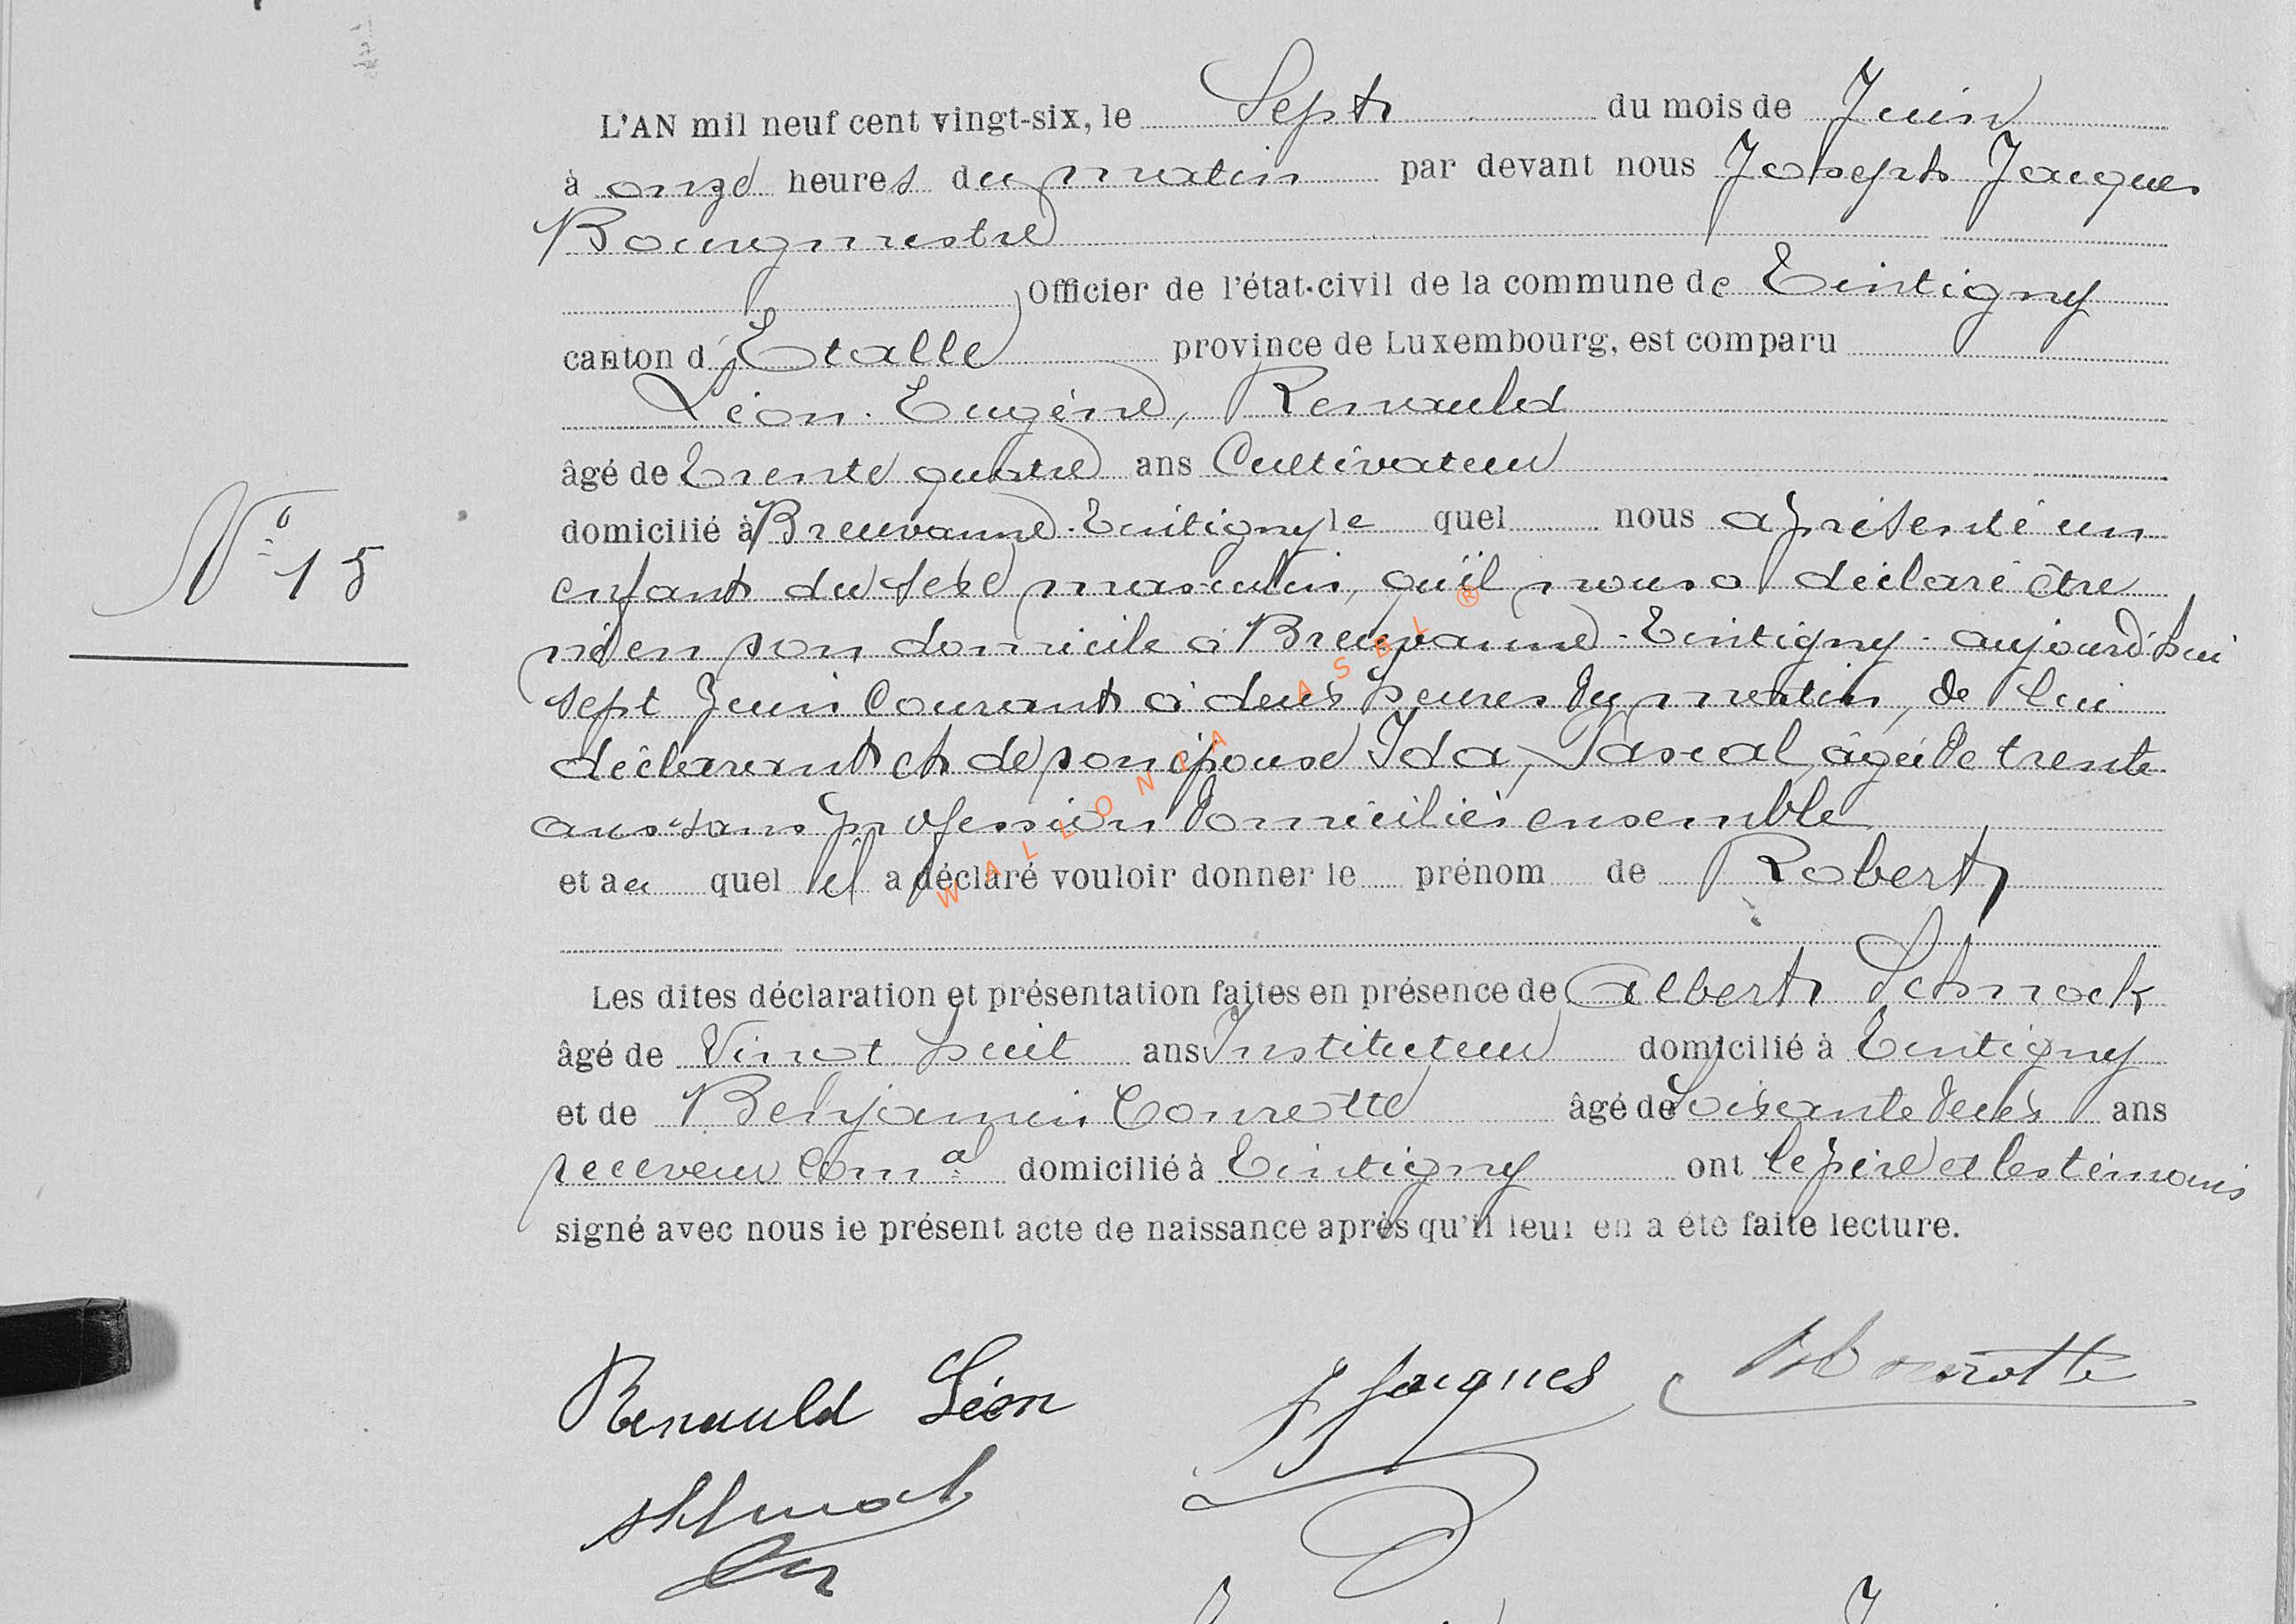 L'AN mil neuf cent vingt-six, le Sept du mois de Juin
à onze heures du matin par devant nous Joseph Jacques
Bourgmestre
Officier de l'état-civil de la commune de Tintigny
canton d'Etalle province de Luxembourg, est comparu
Léon-Eugène, Renauld
âgé de trente quatre ans Cultivateur
domicilié à Breuvanne-Tintigny le quel nous a présenté un
N° 15
enfant du sexe masculin, qu'il nous a déclaré être
né en son domicile à Breuvanne-Tintigny-aujourd'hui
sept Juin Courant à deux heures du matin, de lui
déclarant et de son épouse Ida, Pascal, âgée de trente
ans sans profession domiciliés ensemble
et au quel il a déclaré vouloir donner le prénom de Robert
Les dites déclaration et présentation faites en présence de Albert Schnock
âgé de Vingt huit ans Instituteur domicilié à Tintigny
et de Benjamin Conrotte âgé de Soixante deux ans
receveur Comal domicilié à Tintigny ont le père et les témoins
signé avec nous le présent acte de naissance après qu'il leur en a été faite lecture.
Renauld Léon
J Jacques
B Conrotte
Schnock
WALLONIA ASBL ®